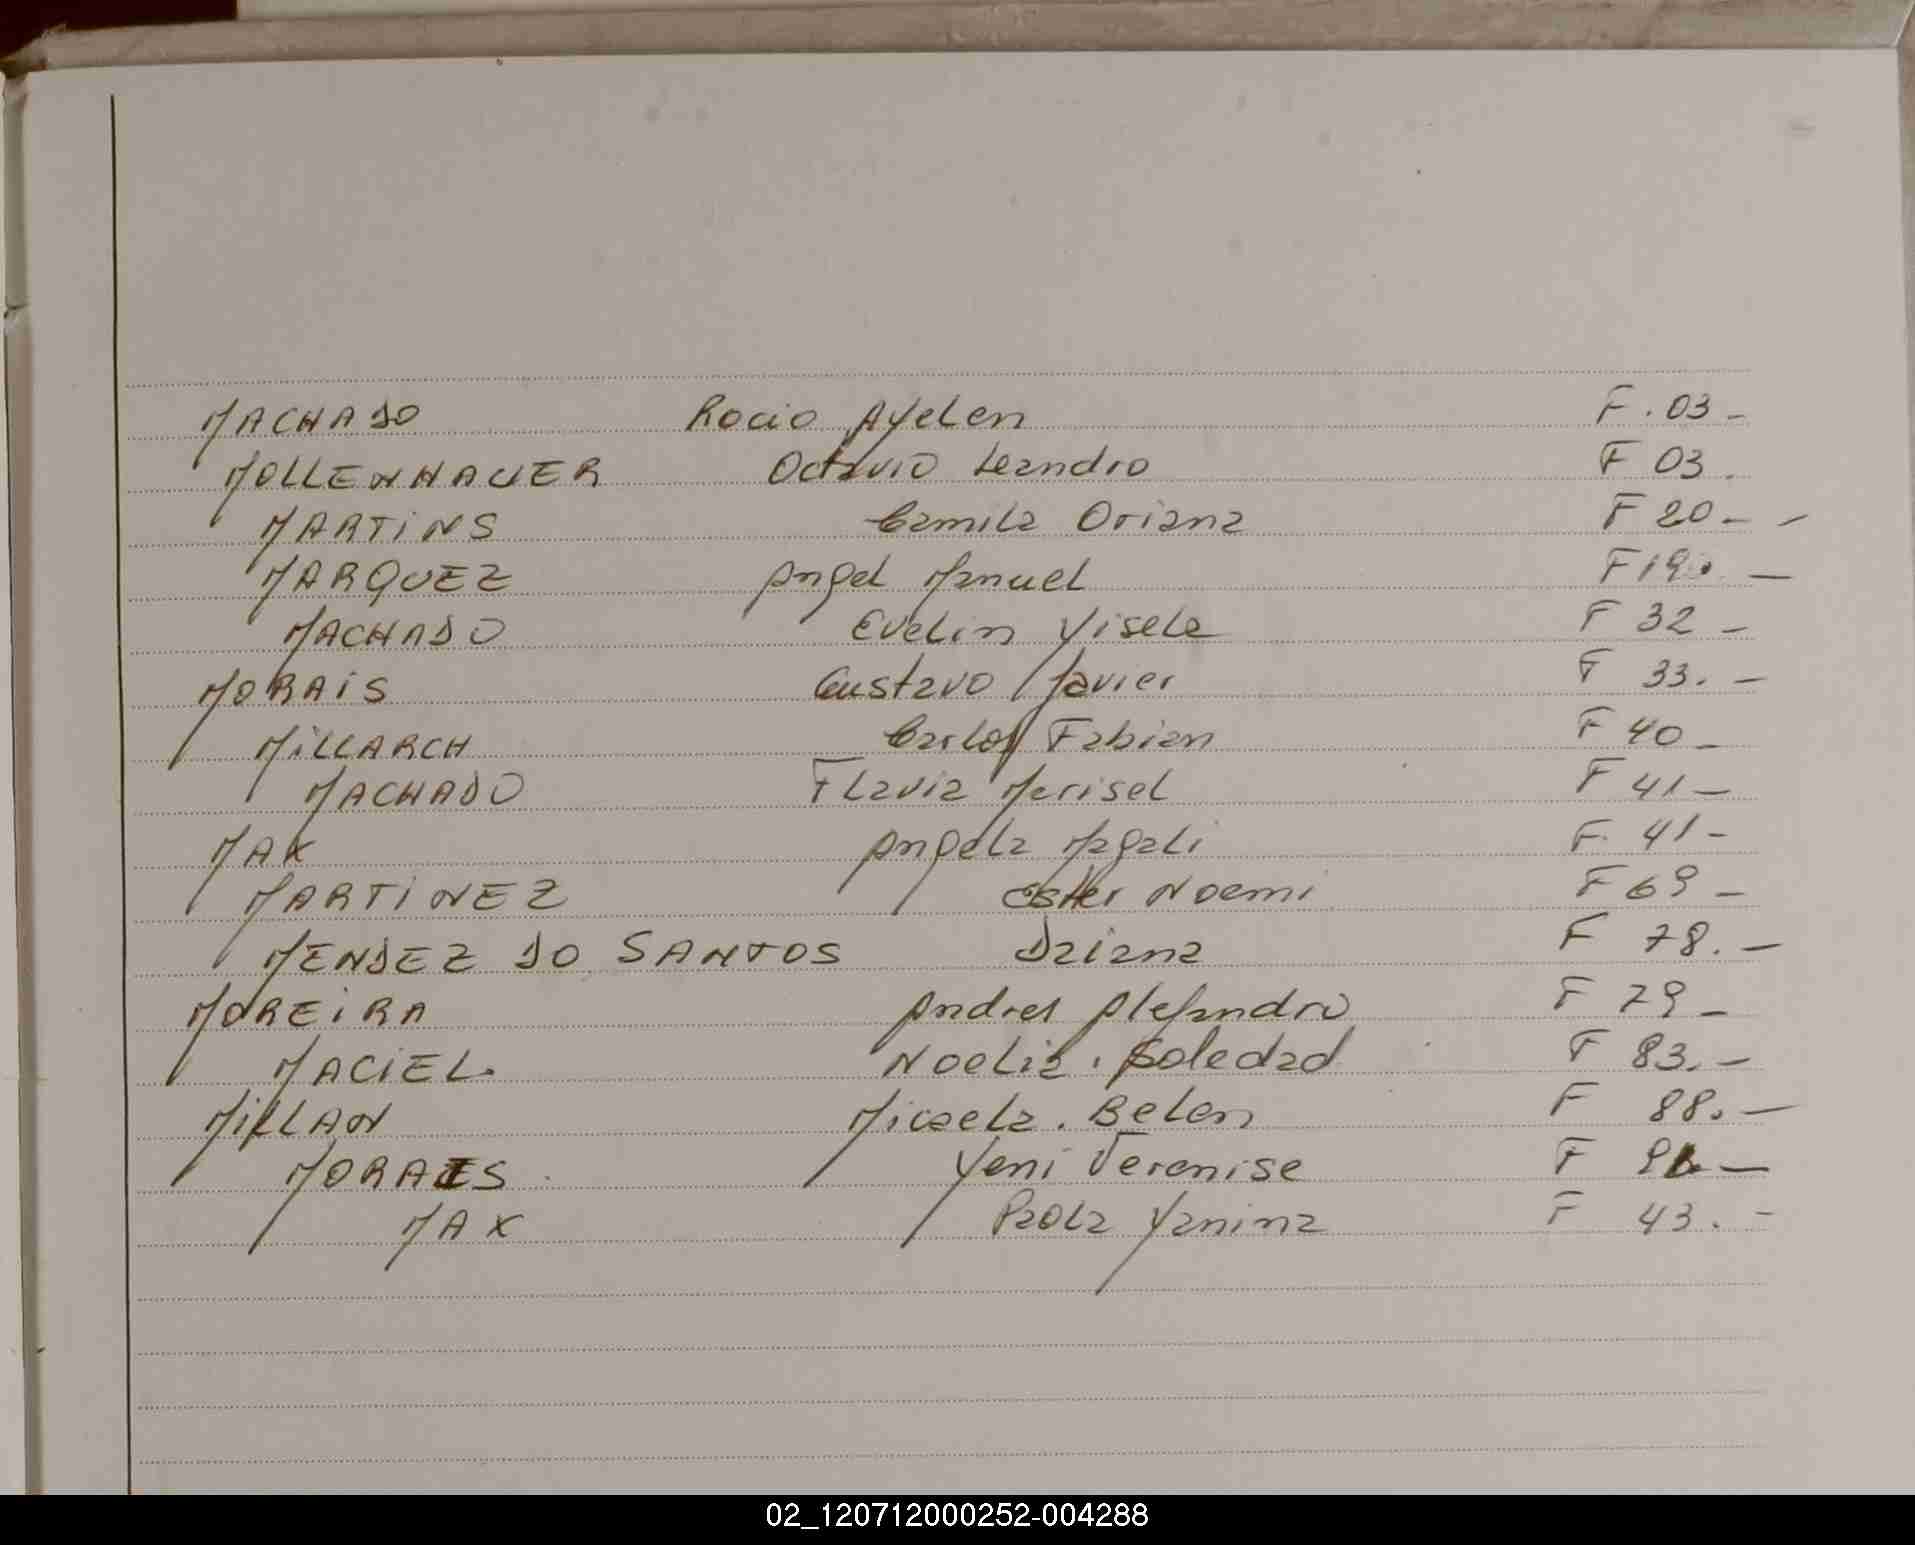 MACHADO Rocio Ayelen F. 03-
MOLLENHAUER Octavio Leandro F 03.
MARTiNS Camila Oriana F 20-
MARQUEZ Angel Manuel F 19. -
MACHADO Evelin Yisela F 32 -
MORAiS Gustavo Javier F 33. -
MiLLARCH Carlos Fabian F 40 -
MACHADO Flavia Marisel F 41 -
MAX Angela Magali F. 41 -
MARTiNEZ Ester Noemi F 69 -
MENDEZ DO SANTOS Daiana F 78. -
MOREiRA Andres Alejandro F 79 -
MACiEL. Noelia. Soledad F 83. -
MiLLAN Micaela. Belen F 88. -
MORAES Yeni Verenise F -
MAX Paola Yanina F 43. -
02_120712000252-004288